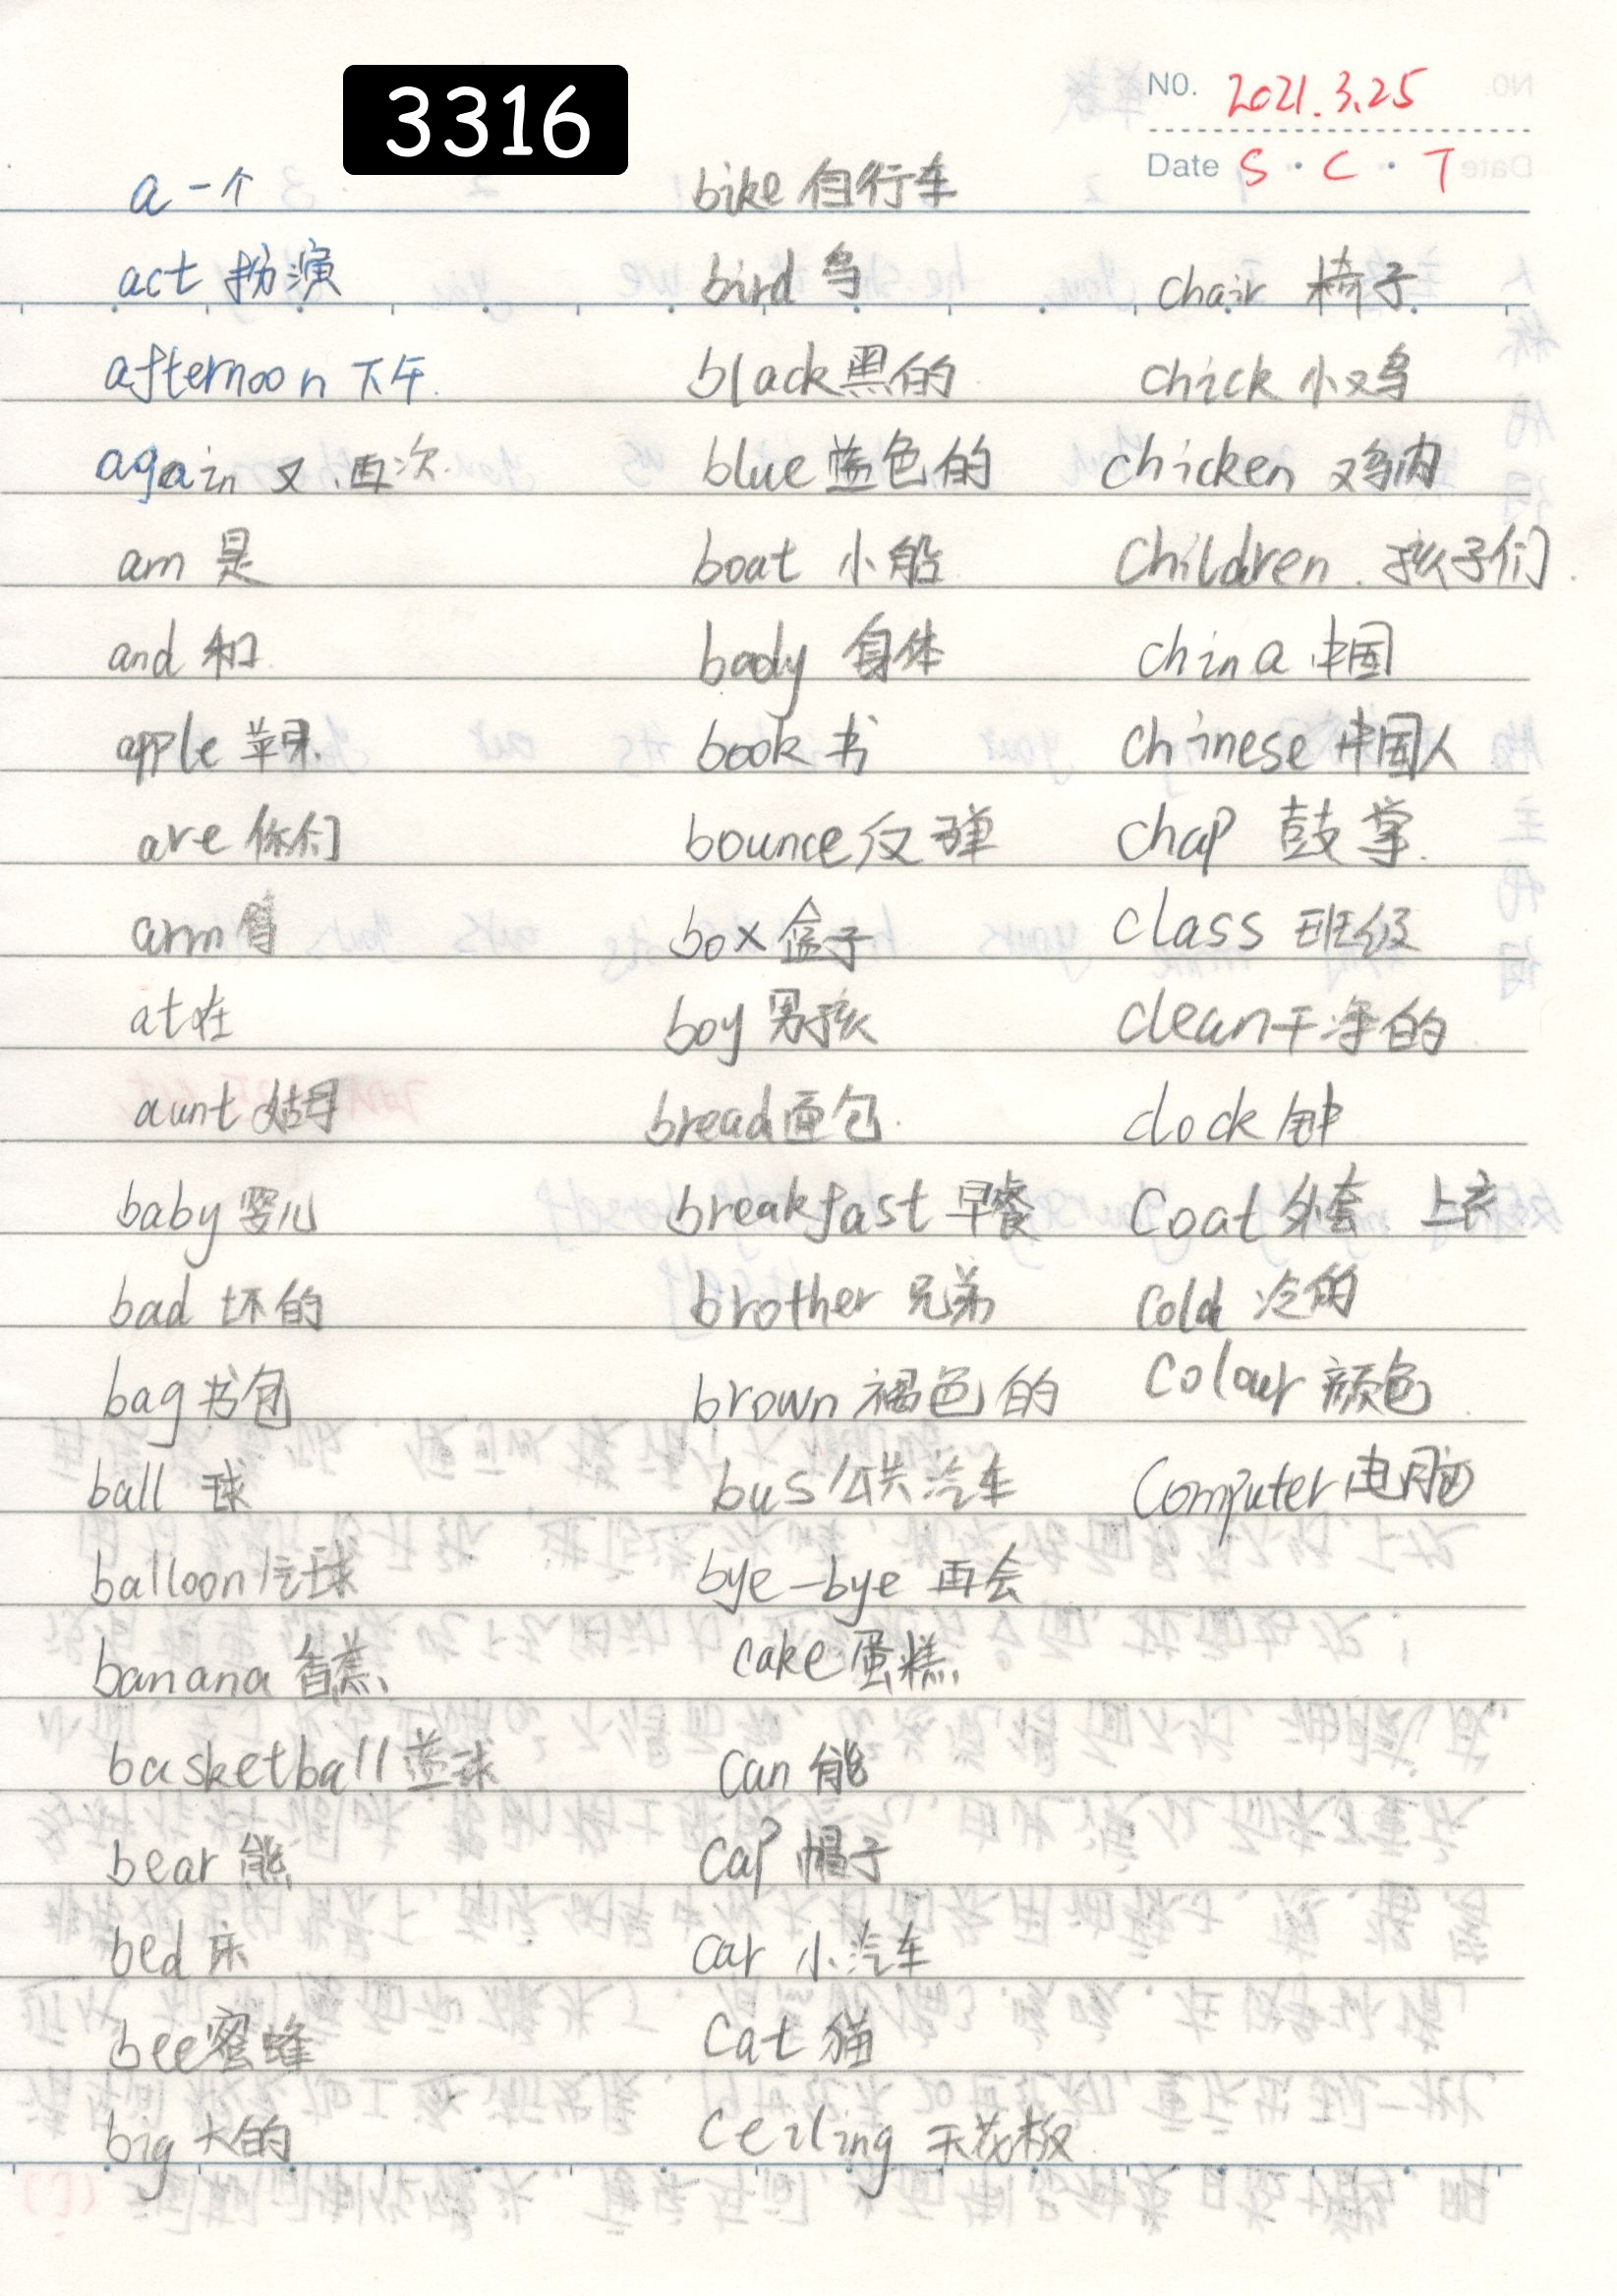 3316
NO. 2021.3.25
Date S · C · T
a 一个
act 扮演
afternoon 下午.
again 又.再次.
am 是
and 和
apple 苹果.
are 你们
arm 臂
at 在
aunt 姑母
baby 婴儿
bad 坏的
bag 书包
ball 球
balloon 气球
banana 香蕉
basketball 蓝球
bear 熊
bed 床
bee 蜜蜂
big 大的
bike 自行车
bird 鸟
black 黑的
blue 蓝色的
boat 小船
body 身体
book 书
bounce 反弹
box 盒子
boy 男孩
bread 面包.
breakfast 早餐
brother 兄弟
brown 褐色的
bus 公共汽车
bye-bye 再会
cake 蛋糕
can 能
cap 帽子
car 小汽车
cat 猫
ceiling 天花板
chair 椅子
chick 小鸡
chicken 鸡肉
children. 孩子们.
china 中国
chinese 中国人
chap 鼓掌.
class 班级
clean 干净的
clock 钟
coat 外套 上衣
cold 冷的
colour 颜色
computer 电脑